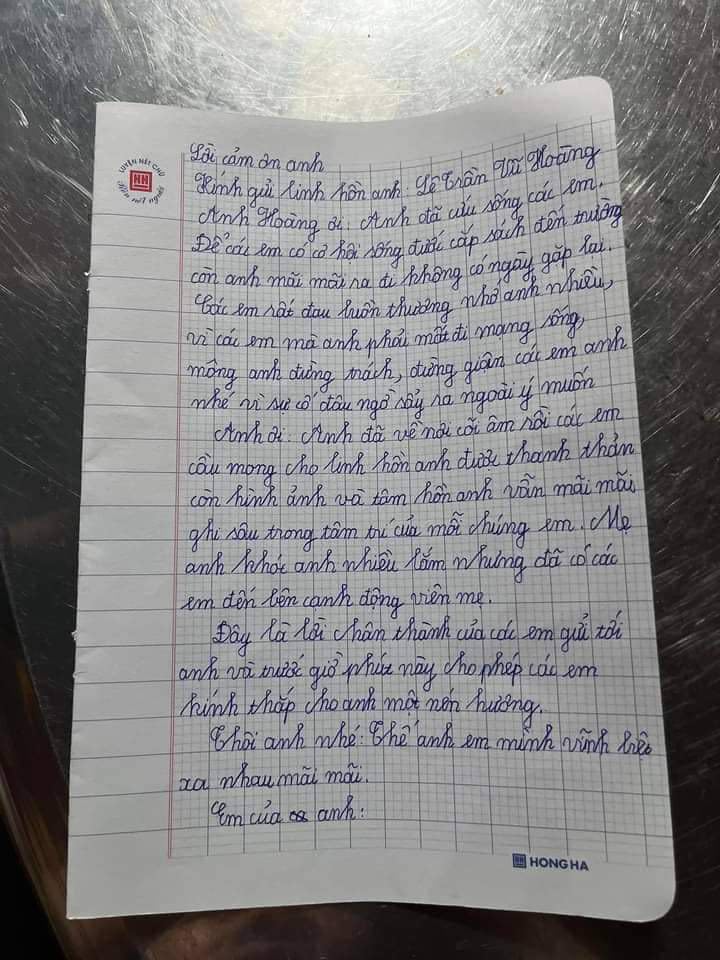 LUYỆN NÉT CHỮ
Rèn nết người
Lời cảm ơn anh
Kính gửi linh hồn anh: Lê Trần Vũ Hoàng
Anh Hoàng ơi: Anh đã cứu sống các em.
Để các em có cơ hội sống được cắp sách đến trường
còn anh mãi mãi ra đi không có ngày gặp lại.
Các em rất đau buồn thương nhớ anh nhiều,
vì các em mà anh phải mất đi mạng sống,
mong anh đừng trách, đừng giận các em anh
nhé vì sự cố đâu ngờ sảy ra ngoài ý muốn
Anh ơi: Anh đã về nơi cõi âm rồi các em
cầu mong cho linh hồn anh được thanh thản
còn hình ảnh và tâm hồn anh vẫn mãi mãi
ghi sâu trong tâm trí của mỗi chúng em. Mẹ
anh khóc anh nhiều lắm nhưng đã có các
em đến bên cạnh động viên mẹ.
Đây là lời chân thành của các em gửi tới
anh và trước giờ phút này cho phép các em
kính thắp cho anh một nén hương.
Thôi anh nhé: Thế anh em mình vĩnh biệt
xa nhau mãi mãi.
Em của anh:
HONG HA